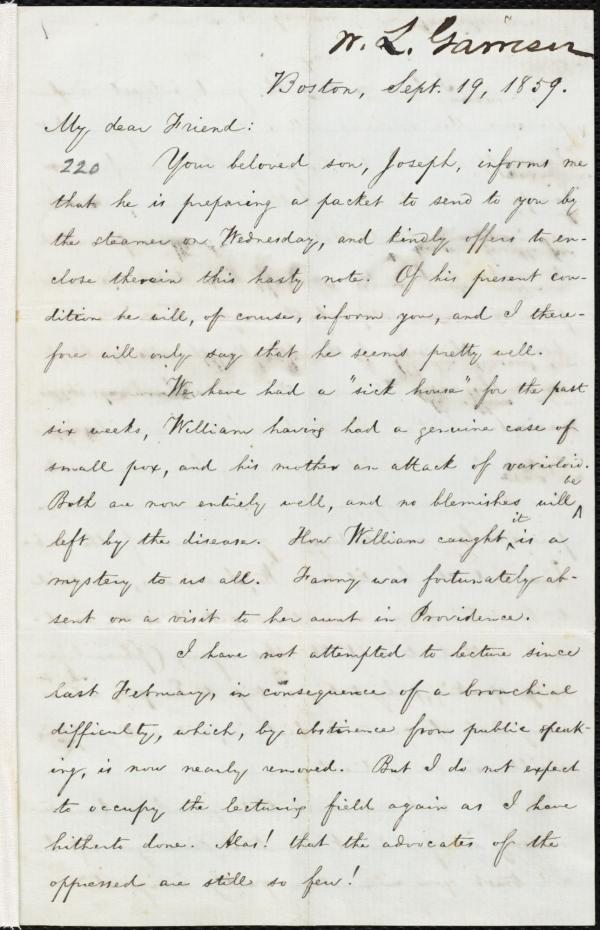 W. L. Garrison
Boston, Sept. 19, 1859.
My dear Friend:
220 Your beloved son, Joseph, informs me
that he is preparing a packet to send to you by
the steamer on Wednesday, and kindly offers to en-
close therein this hasty note. Of his present con-
dition he will, of course, inform you, and I there-
fore will only say that he seems pretty well.
We have had a "sick house" for the past
six weeks, William having had a genuine case of
small pox, and his mother an attack of varioloid.
Both are now entirely well, and no blemishes will be
left by the disease. How William caught it is a
mystery to us all. Fanny was fortunately ab-
sent on a visit to her aunt in Providence.
I have not attempted to lecture since
last February, in consequence of a bronchial
difficulty, which, by abstinence from public speak-
ing, is now nearly removed. But I do not expect
to occupy the lecturing field again as I have
hitherto done. Alas! that the advocates of the
oppressed are still so few!